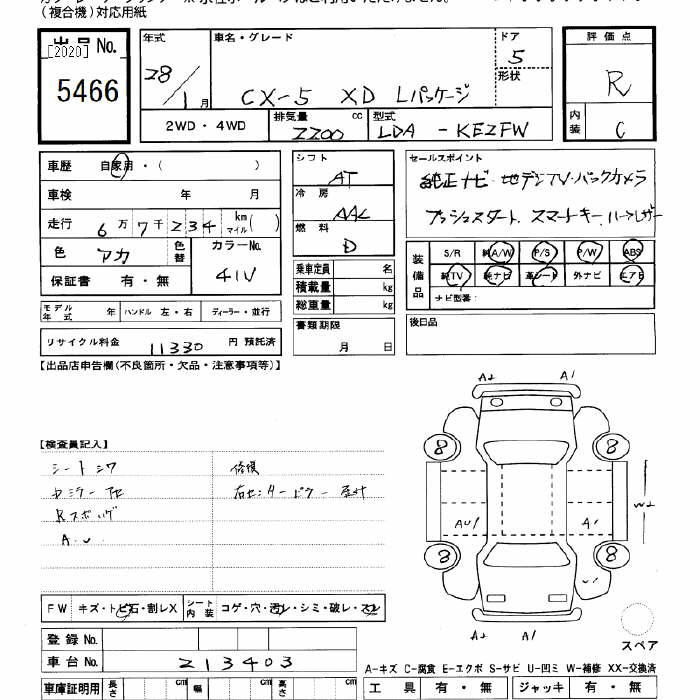 (複合機)対応用紙
出品No.
[2020]
5466
年式
28/1月
車名・グレード
CX-5 XD Lパッケージ
ドア
5
形状
2WD・4WD
排気量
2200 cc
型式
LDA - KE2FW
評価点
R
内装
C
車歴 自家用・( )
車検 年 月
走行 6万7千234 km マイル( )
色 アカ 色替
カラーNo. 41V
保証書 有・無
シフト AT
冷房 AAC
燃料 D
乗車定員 名
積載量 kg
総重量 kg
セールスポイント
純正ナビ・地デジTV・バックカメラ
プッシュスタート、スマートキー、ハーフレザー
装備品
S/R 純A/W P/S P/W ABS
純TV 純ナビ 革シート 外ナビ エアB
ナビ型番:
モデル年式 年 ハンドル 左・右 ディーラー・並行
書類期限
月 日
後日品
リサイクル料金 11330 円 預託済
【出品店申告欄(不良箇所・欠品・注意事項等)】
A2 A1
8 8
AU1 A1 W2
8 8
A2 A1
スペア
【検査員記入】
シートシワ 修復
Rスポイラ
A.U
FW キズ・トビ石・割レX シート内装 コゲ・穴・汚レ・シミ・破レ・スレ
登録No.
車台No. 213403
A-キズ C-腐食 E-エクボ S-サビ U-凹ミ W-補修 XX-交換済
車庫証明用 長さ cm 幅 cm 高さ cm
工具 有・無 ジャッキ 有・無